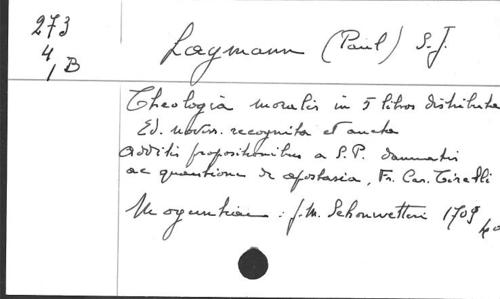 273
4
1 B
Laymann (Paul) S.J.
Theologia moralis in 5 libros distributa
Ed. noviss. recognita et aucta
additis propositionibus a S.P. damnatis
ac quaestione de apostasia, Fr. Car. Tirelli
Moguntiae : J.M. Schonwetteri 1709